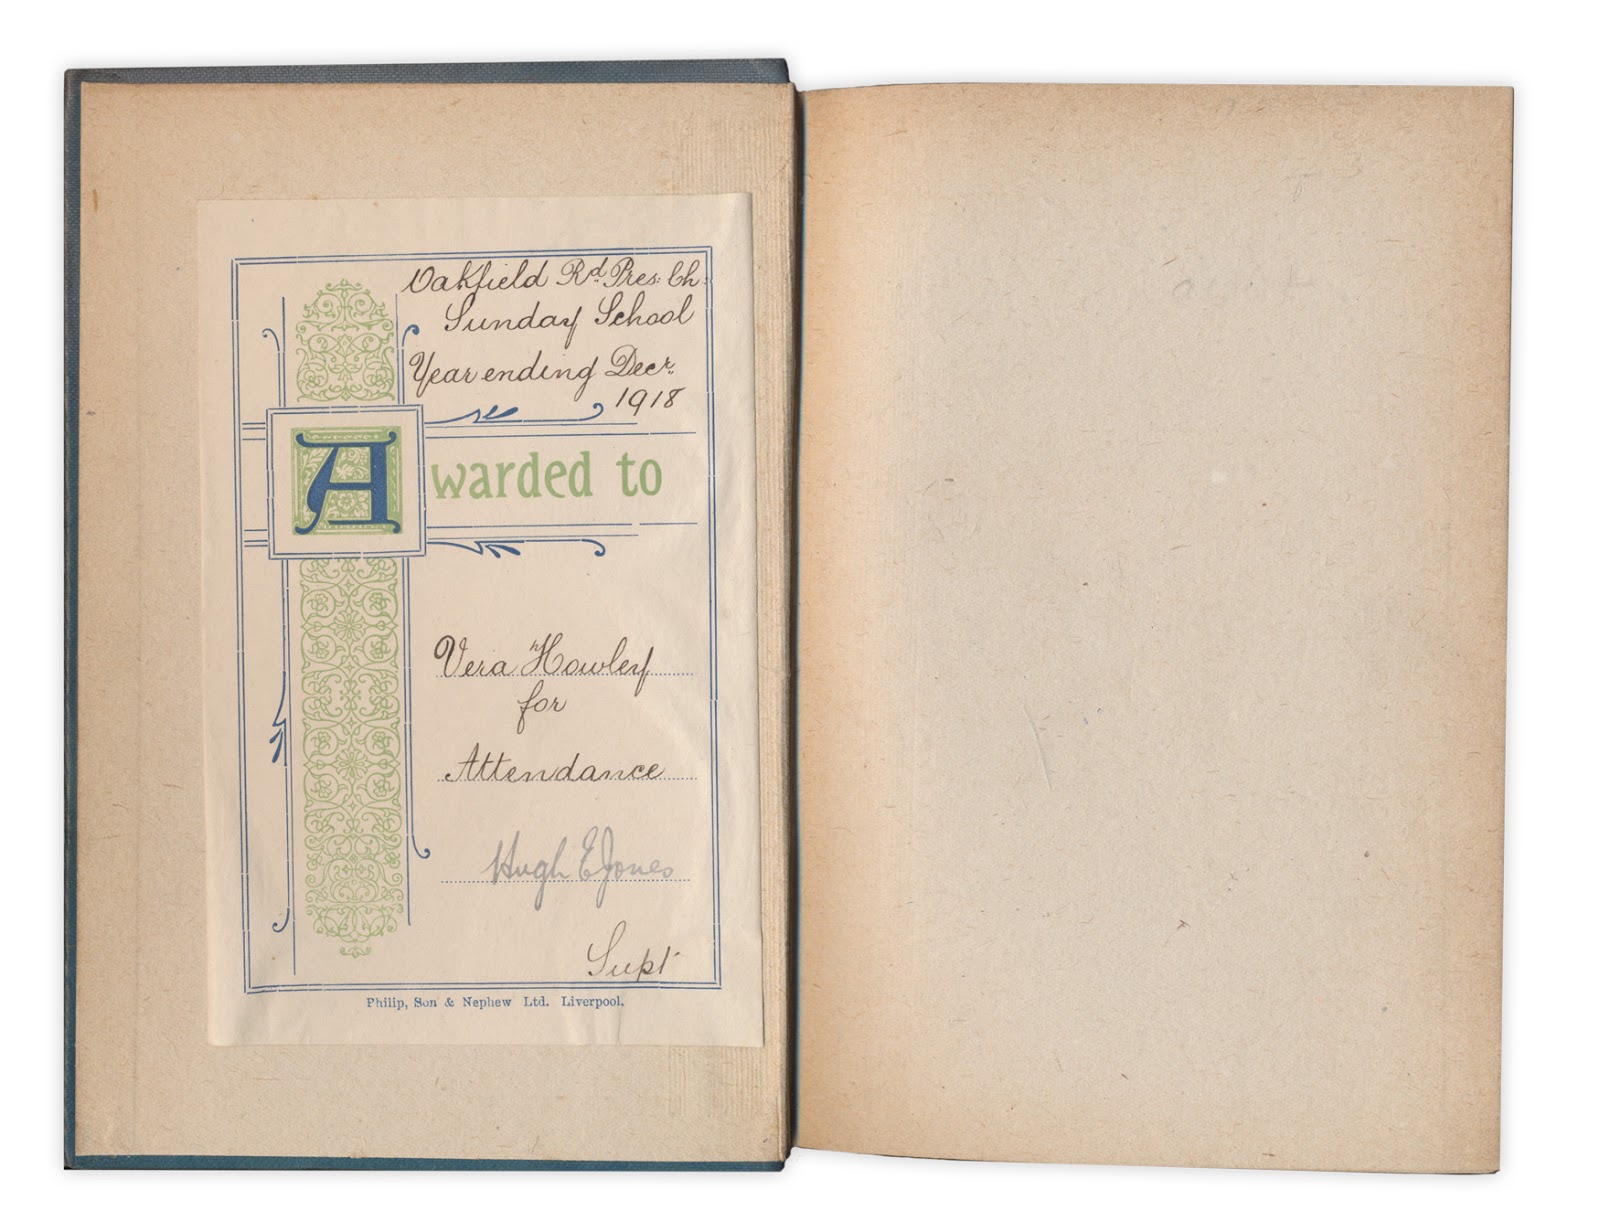 Oakfield Rd. Pres: Ch:
Sunday School
Year ending Decr.
1918
Awarded to
Vera Howley
for
Attendance
Hugh E Jones
Supt
Philip, Son & Nephew Ltd. Liverpool.